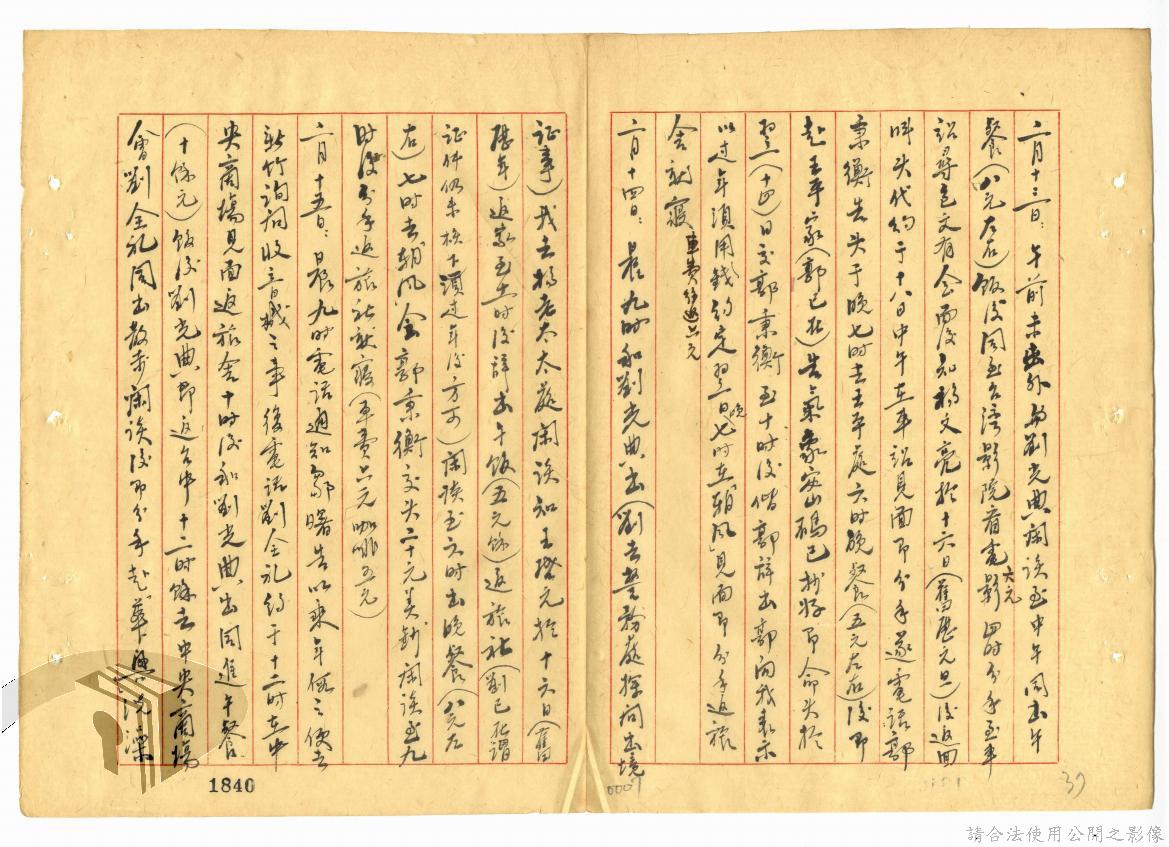 二月十三日：午前未出外與劉光典閑談至中午同出午
餐（八元左右）飯後同至台灣影院看電影六元四時分手至車
站尋包文有會面後知楊文亮於十六日（舊曆元旦）後返回
叫失代約于十八日中午在車站見面即分手遂電話郭
秉衡告失于晚七時去王平處六時晚餐（五元左右）後即
赴王平家（郭已在）告氣象密碼已抄好即命失於
翌（十四）日交郭秉衡至十時後偕郭辭出郭向我表示
以過年須用錢約定翌日晚七時在朝風見面即分手返旅
舍就寢 車費往返六元
二月十四日：晨九時和劉光典出（劉去警務處探問出境
証事）我去楊老太太處閑談知王璧元於十六日（舊
曆年）返家至十一時後辭出午飯（五元餘）返旅社（劉已在謂
証件仍未核下須過年後方可）閑談至六時出晚餐（八元左
右）七時去朝風會郭秉衡交失二十元美鈔閑談至九
時後分手返旅社就寢（車費六元咖啡五元）
二月十五日：晨九時電話通知鄒曙告以乘年假之便去
新竹詢問收音機之事後電話劉全礼約于十二時在中
央商場見面返旅舍十時後和劉光典出同進午餐
（十餘元）飯後劉光典即返台中十二時餘去中央商場
會劉全礼同出散步閑談後即分手赴華興洗澡
1840
0007
37
請合法使用公開之影像